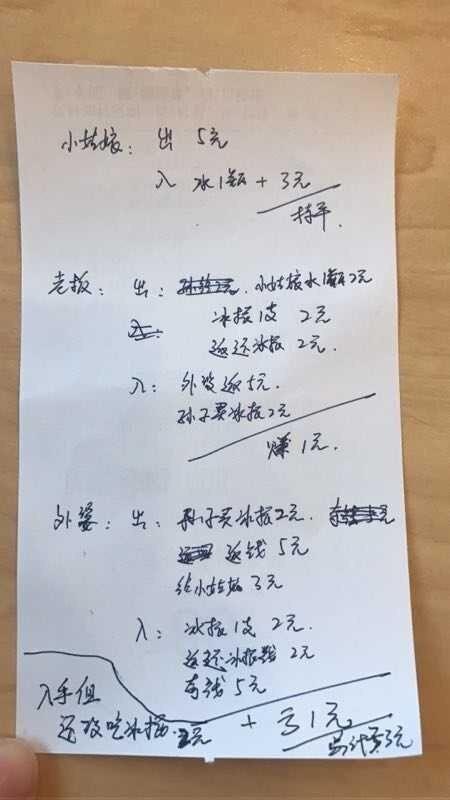 小姑娘: 出 5元
入 水1瓶 + 3元
持平.
老板: 出: 小姑娘水1瓶2元
入:
冰棍1支 2元
返还冰棍 2元.
入: 外婆返5元.
孙子买冰棍2元
赚1元.
外婆: 出: 孙子买冰棍2元.
返钱 5元
给小姑娘 3元
入: 冰棍1支 2元.
返还冰棍 2元
有钱5元
入手但 + 亏1元
还没吃冰棍.2元 共计亏3元